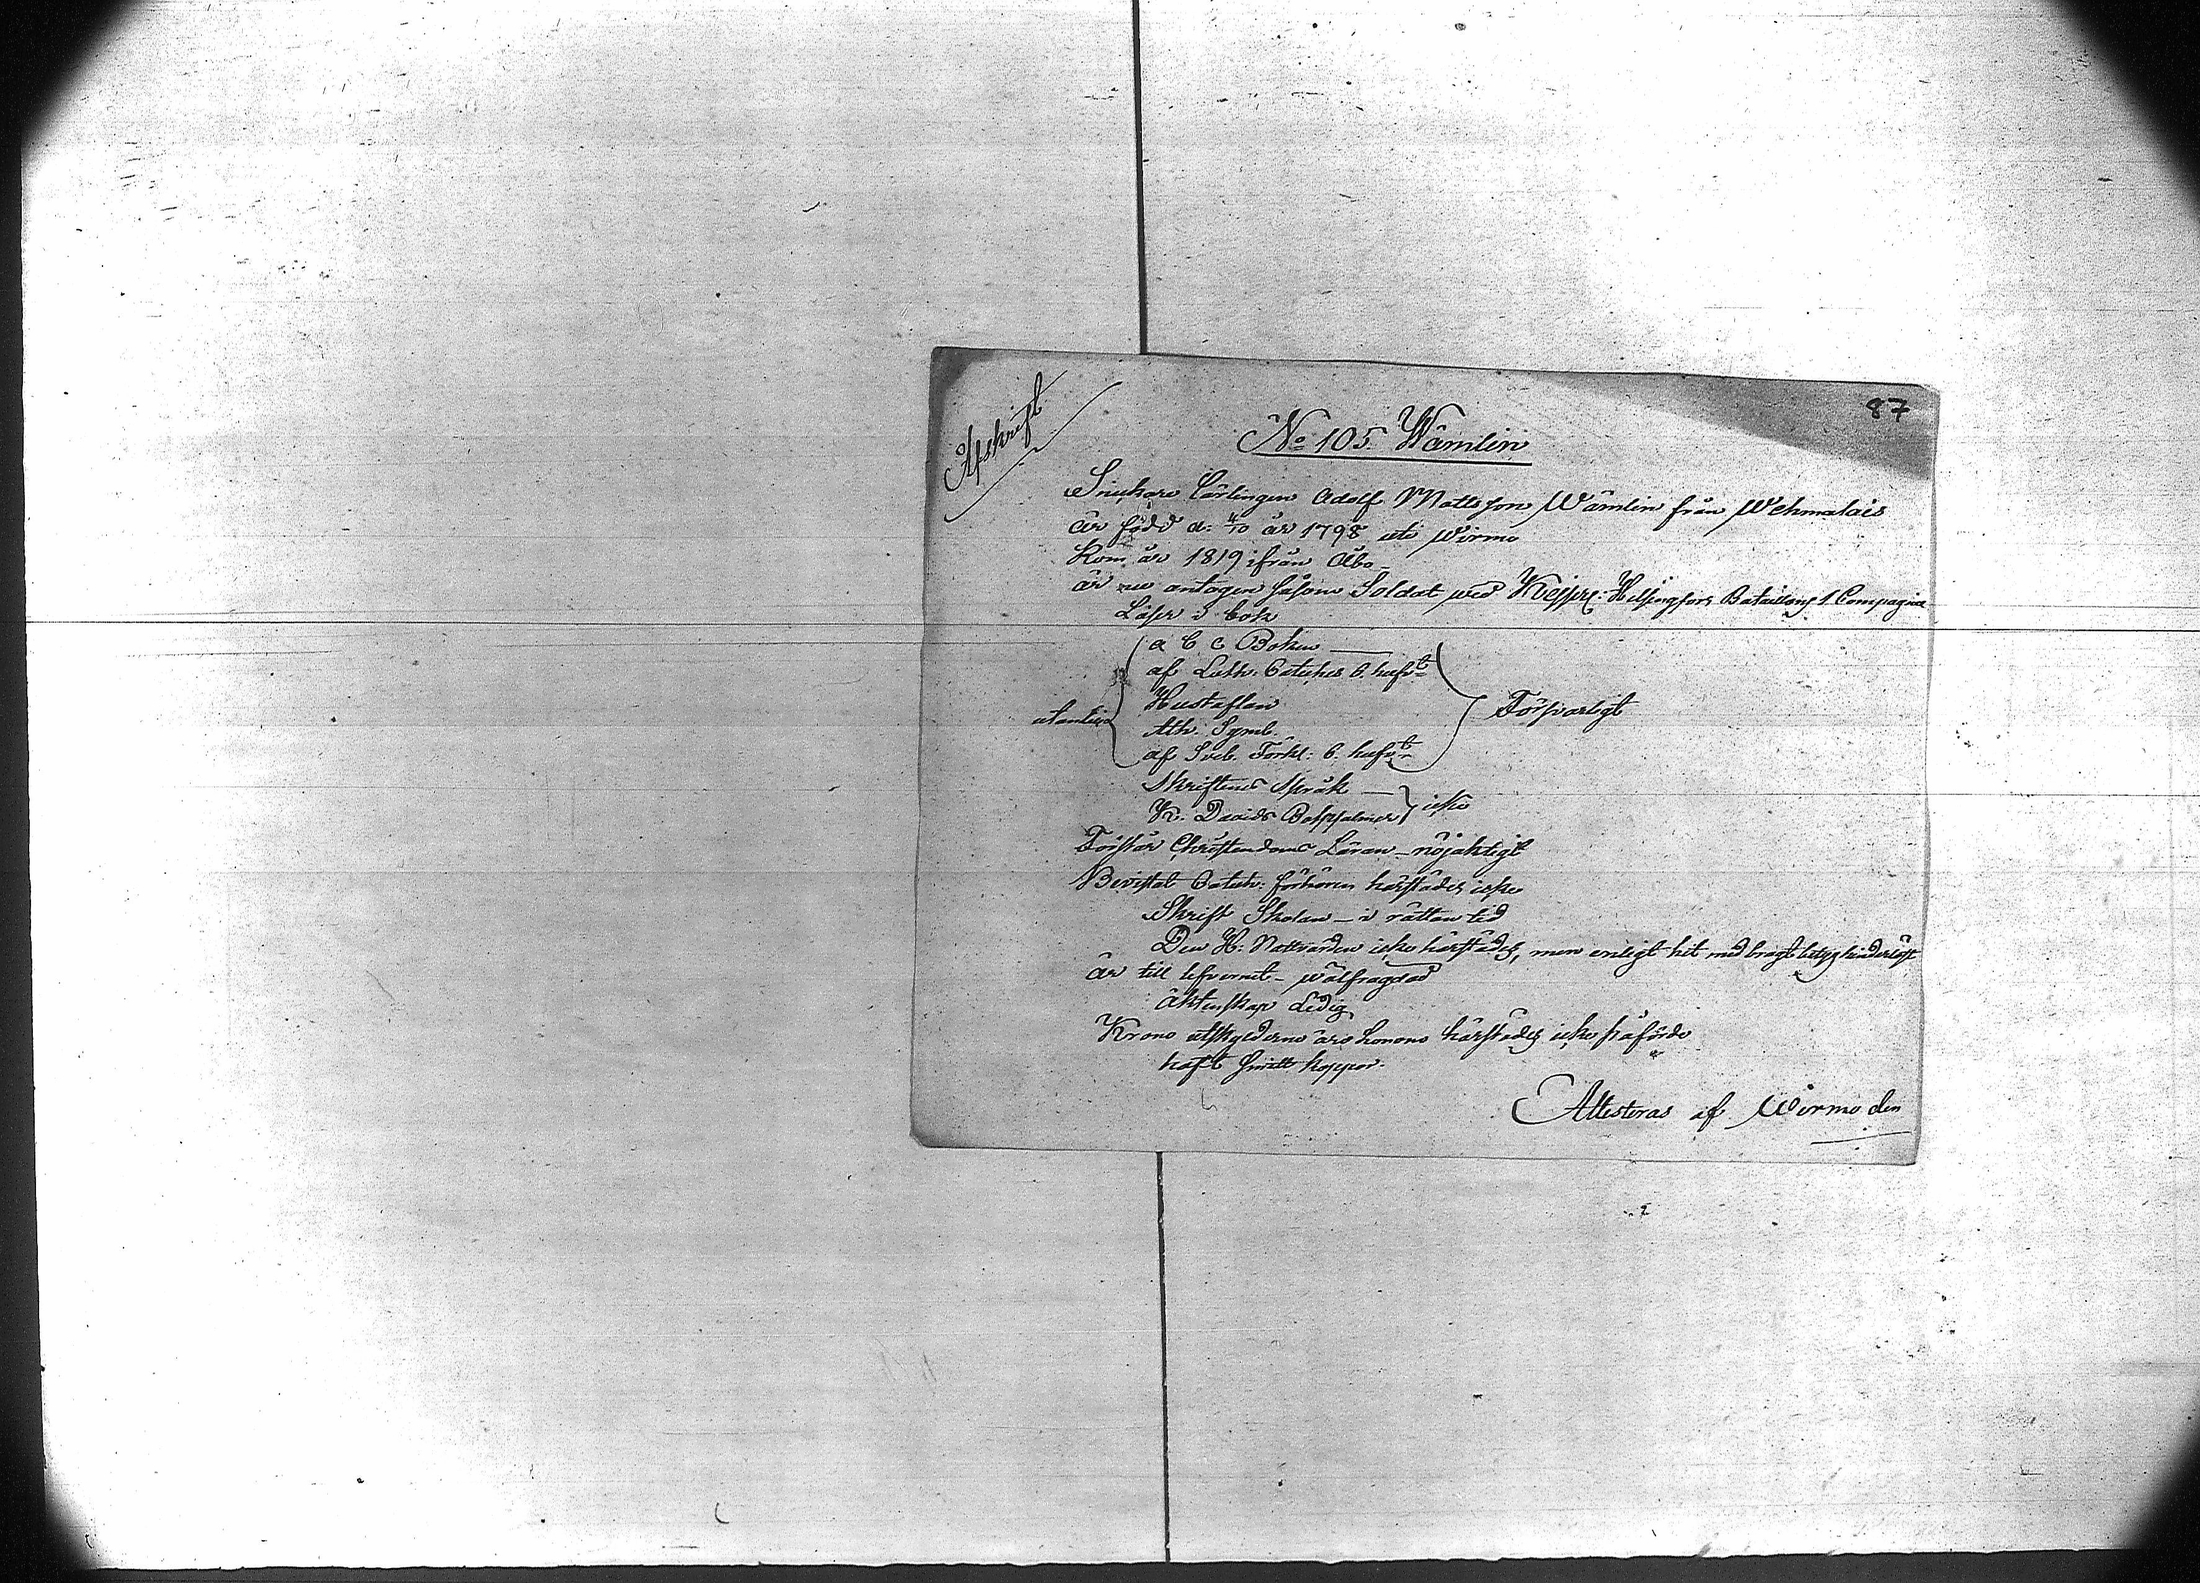 87
Afskrift
No 105. Wämlin
Snickare Lärlingen Adolf Mattsson Wämlin från Wehmalais
är född d. 4/10 år 1798 uti Wirmo
Kom år 1819 ifrån Åbo
är nu antagen såsom Soldat wid Kejserl: Helsingfors Bataillons 1 Compagnie
Läser i bok
a b c Boken
af Luth. Cateches 6. hufvt
Hustaflan
utantill Försvarligt
Ath. Symb.
af Sveb. Förkl: 6. hufvt
Skriftenes språk
K. Davids Botpsalmer icke
Förstår Christendoms Läran - nöjaktigt
Bevistat Catech: förhören härstädes icke
Skrift Skolan - i rättan tid
Den H: Nattvarden icke härstädes, men enligt hit medbragt betyg hinderlöst
är till lefvernet - wälfragdad
äktenskap Ledig
Krono utskylderne äro honom härstädes icke påförde
haft små koppor.
Attesteras af Wirmo den